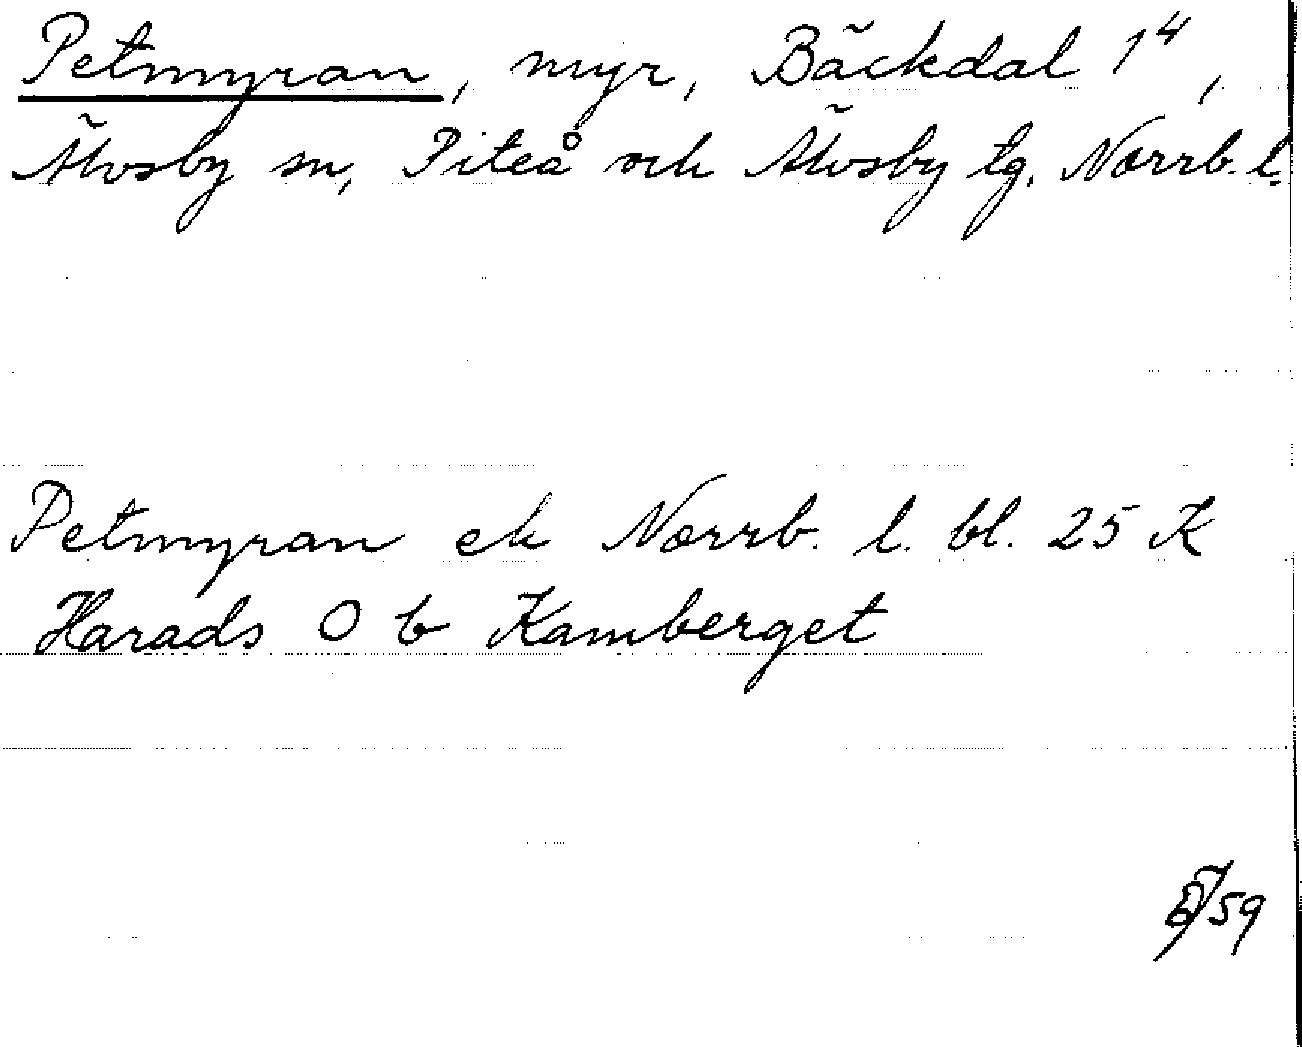 Petmyran, myr, Bäckdal 1⁴,
Älvsby sn, Piteå och Älvsby tg. Norrb. l.
Petmyran ek Norrb. l. bl. 25 K
Harads O b Kamberget
/59